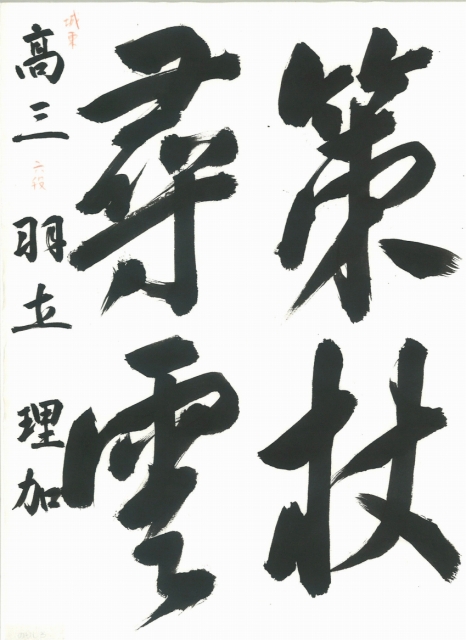 策杖
尋雲
高三 羽立 理加
城東
六段